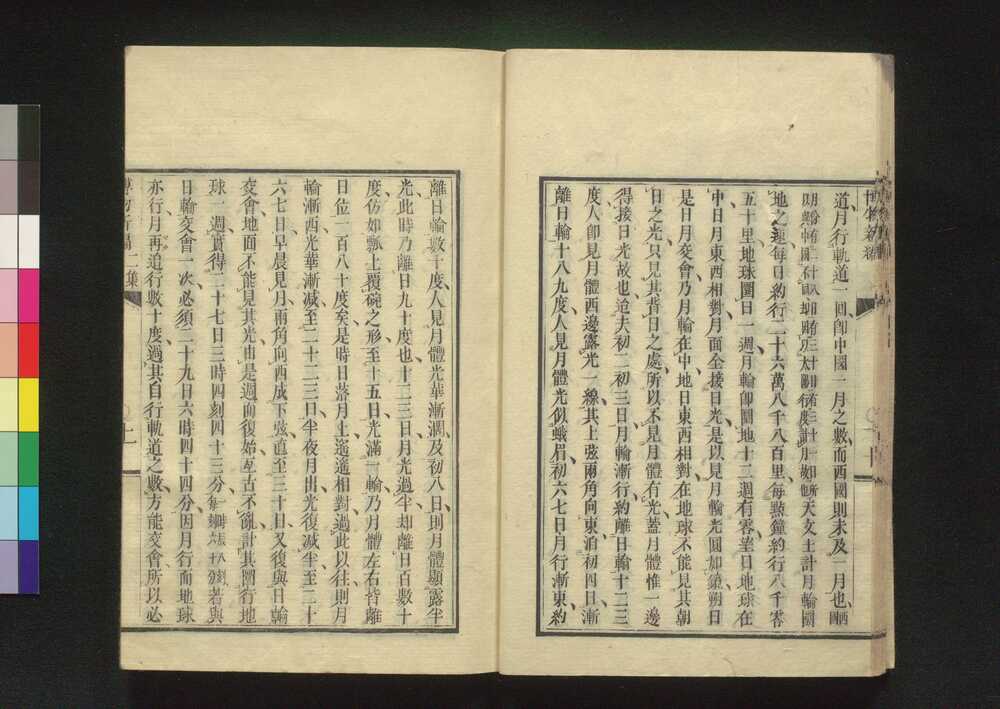 道月行軌道一回卽中國一月之數而西國則未及一月也西國
地之速每日約行二十六萬八千八百里每點鐘約行八千零
五十里地球圜日一週月輪卽圜地十二週有零望日地球在
中日月東西相對月面全接日光是以見月輪光圓如鏡朔日
是日月交會乃月輪在中地日東西相對在地球不能見其朝
日之光只見其背日之處所以不見月體有光蓋月體惟一邊
得接日光故也迨夫初二初三日月輪漸行約離日輪十二三
度人卽見月體西邊露光一線其上弦兩角向東泊初四日漸
離日輪十八九度人見月體光似蛾眉初六七日月行漸東約
離日輪數十度人見月體光華漸濶及初八日則月體顯露半
光此時乃離日九十度也十二三日月光過半却離日百數十
度仿如瓢上覆碗之形至十五日光滿一輪乃月體左右皆離
日位一百八十度矣是時日落月上遙遙相對過此以往則月
輪漸西光華漸減至二十二三日半夜月出光復減半至二十
六七日早晨見月兩角向西成下弦直至三十日又復與日輪
交會地面不能見其光由是週而復始亙古不亂計其圜行地
球一週實得二十七日三時四刻四十三分若與
日輪交會一次必須二十九日六時四十四分因月行而地球
亦行月再追行數十度過其自行軌道之數方能交會所以必